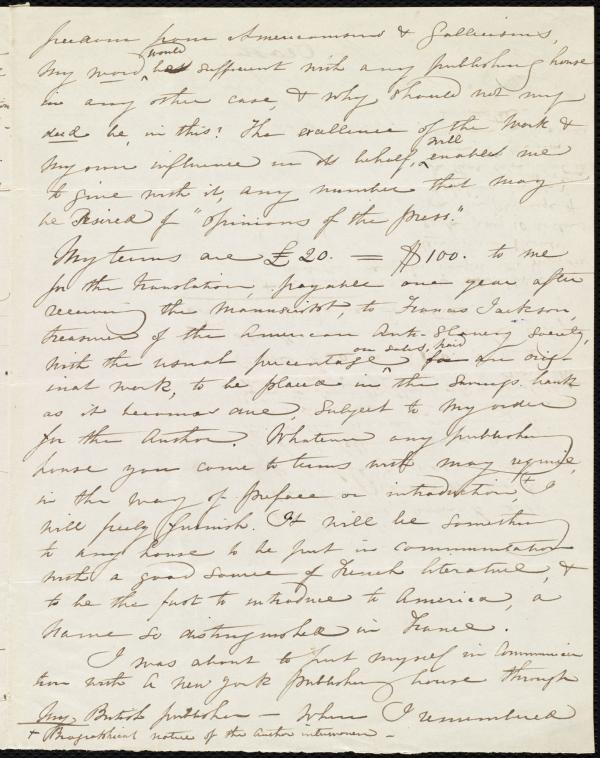 freedom from Americanisms & Gallicisms,
My word would be sufficient with any publishing house
in any other case, & why should not my
deed be, in this? The excellence of the work &
my own influence in its behalf, will enable me
to give with it, any number that may
be desired of "opinions of the press."
My terms are £20. = $100. to me
for the translation, payable one year after
receiving the manuscript, to Francis Jackson,
treasurer of the American Anti-Slavery Society,
with the usual percentage on sales, paid for an orig-
inal work, to be placed in the savings bank
as it becomes due, subject to my order
for the Author. Whatever any publishing
house you come to terms with may require,
in the way of preface or introduction, + I
will freely furnish. It will be something
to any house to be put in communication
with a good source of French literature, &
to be the first to introduce to America, a
name so distinguished in France.
I was about to put myself in communica
tion with a New York publishing house through
my British publisher — when I remembered
+ Biographical notice of the Author interwoven —